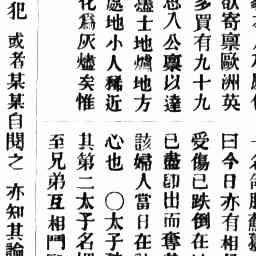 欲寄稟歐洲英
多買有九十九
入公稟以達
燼士地燐地方
處地小人稀近
化爲灰燼矣惟
曰今日亦有相
受傷已跌倒在
已盡卽出而奪
該婦人當日在
心也 ○太子
其第二太子名
至兄弟互相鬥
犯 或者某某自閱之 亦知其論